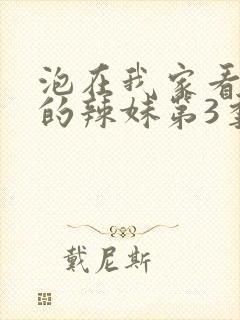 泡在我家看
的辣妹第3季
戴尼斯